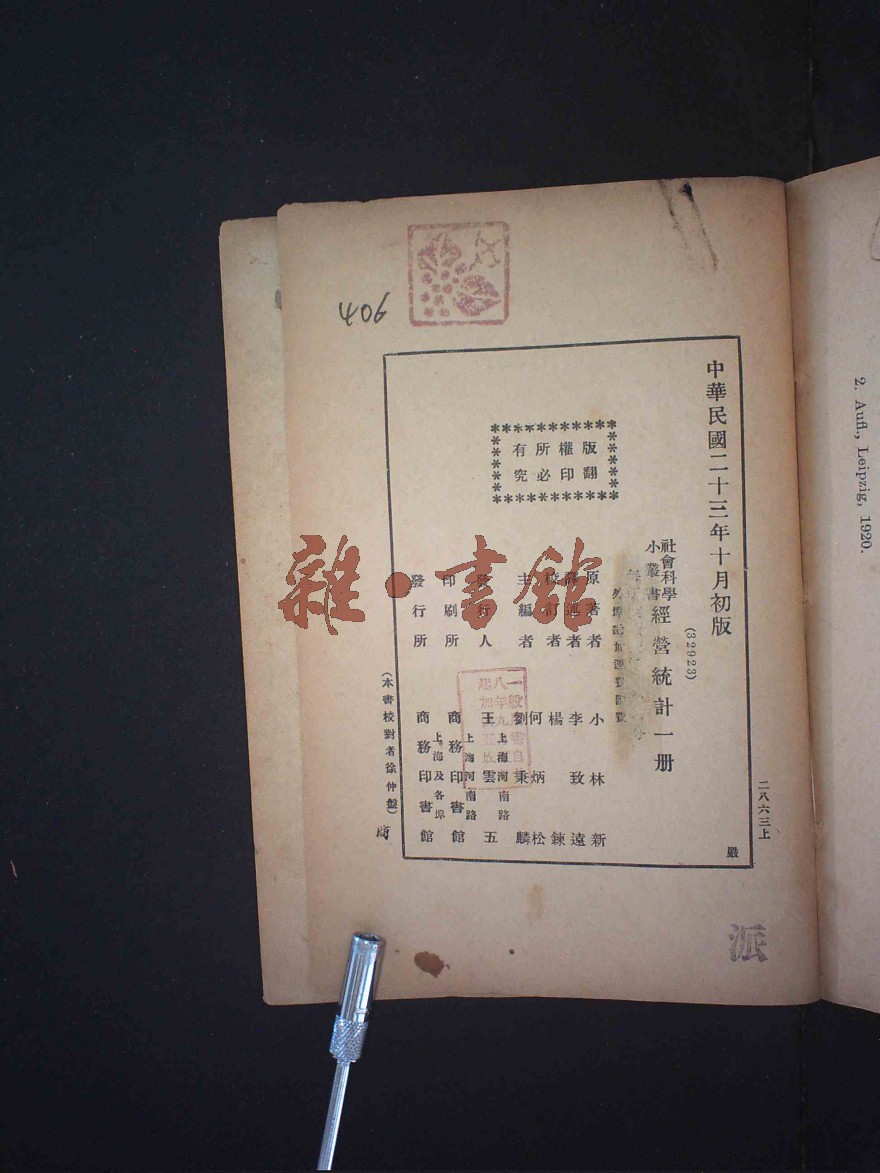 406
中華民國二十三年十月初版
(32923)
社會科學
小叢書
經營統計一册
版權所有
翻印必究
原著者 小林新
譯述者 李致遠
校訂者 楊鍊
主編者 何炳松
劉秉麟
發行人 王雲五
上海河南路
印刷所 商務印書館
上海河南路
發行所 商務印書館
上海及各埠
(本書校對者徐仲盤)
商
二八六三上
嚴
派
雜·書館
2. Aufl., Leipzig, 1920.